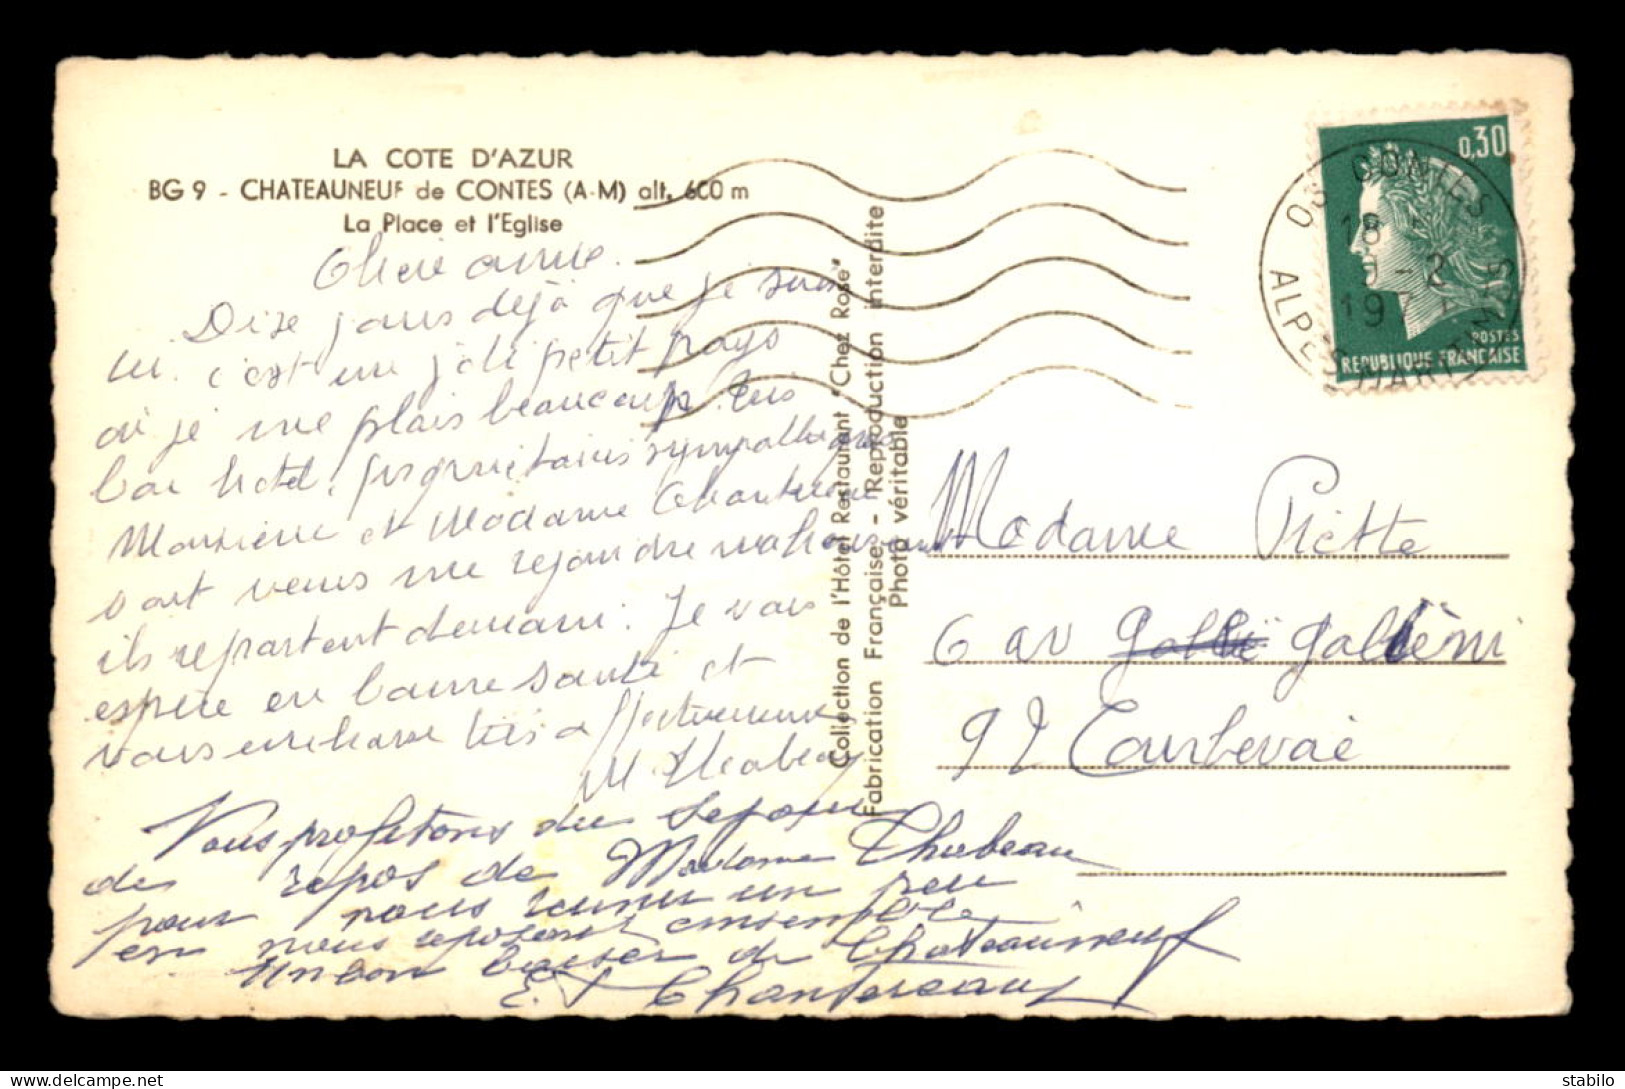 LA COTE D'AZUR
BG 9 - CHATEAUNEUF de CONTES (A-M) alt. 600 m
La Place et l'Eglise
Chère amie.
Dixe jours déjà que je suis
ici. c'est un joli petit pays
où je me plais beaucoup. très
bon hotel, propriétaires sympathiques
Monsieur et Madame Chantereau
sont venus me rejoindre
ils repartent demain. Je vous
espère en bonne santé et
vous embrasse très affectueusement
M Thabeau
Nous profitons du séjour
de repos de Madame Thabeau
pour nous reunir un peu
en nous reposant ensemble
Un bon baiser de Chateauneuf
E. Chantereau
Collection de l'Hôtel Restaurant "Chez Rose"
Fabrication Française - Reproduction interdite
Photo véritable
0,30
POSTES
REPUBLIQUE FRANÇAISE
06 CONTES
18
-2
197
ALPES MARITIMES
Madame Piette
6 av Galliéni
92 Courbevoie
delcampe.net
stabilo